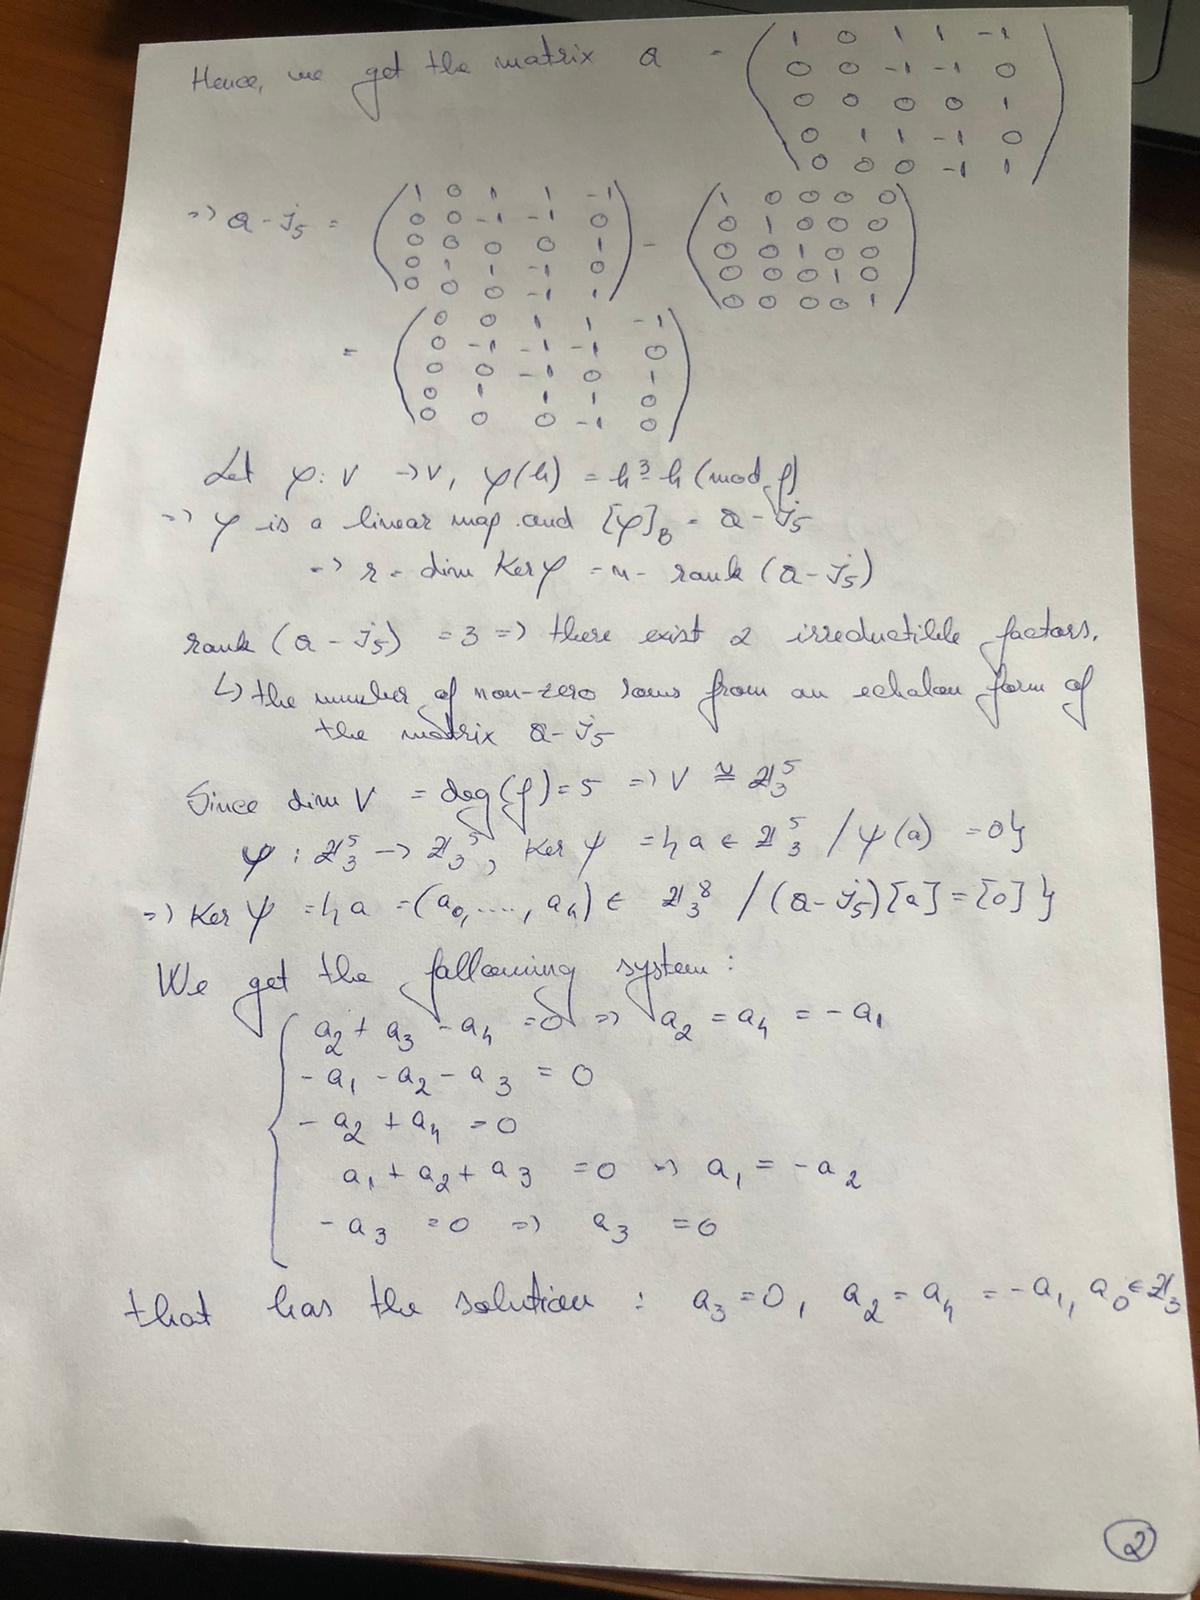 Hence, we get the matrix Q = ( 1 0 1 1 -1
0 0 -1 -1 0
0 0 0 0 1
0 1 1 -1 0
0 0 0 -1 1 )
=> Q - I5 = ( 1 0 1 1 -1 ) - ( 1 0 0 0 0 )
0 0 -1 -1 0 0 1 0 0 0
0 0 0 0 1 0 0 1 0 0
0 1 1 -1 0 0 0 0 1 0
0 0 0 -1 1 0 0 0 0 1
= ( 0 0 1 1 -1
0 -1 -1 -1 0
0 0 -1 0 1
0 1 1 1 0
0 0 0 -1 0 )
Let φ: V -> V, φ(h) = h³ - h (mod f)
=> φ is a linear map and [φ]B = Q - I5
=> r = dim Ker φ = n - rank (Q - I5)
rank (Q - I5) = 3 => there exist 2 irreductible factors.
↳ the number of non-zero rows from an echalon form of
the matrix Q - I5
Since dim V = deg(f) = 5 => V ≅ ℤ₃⁵
φ : ℤ₃⁵ -> ℤ₃⁵, Ker φ = { a ∈ ℤ₃⁵ / φ(a) = 0 }
=> Ker φ = { a = (a0, ...., a4) ∈ ℤ₃⁸ / (Q - I5)[a] = [0] }
We get the fallowing system :
a2 + a3 - a4 = 0 => a2 = a4 = -a1
-a1 - a2 - a3 = 0
-a2 + a4 = 0
a1 + a2 + a3 = 0 => a1 = -a2
-a3 = 0 => a3 = 0
that has the solution : a3 = 0, a2 = a4 = -a1, a0 ∈ ℤ₃
2